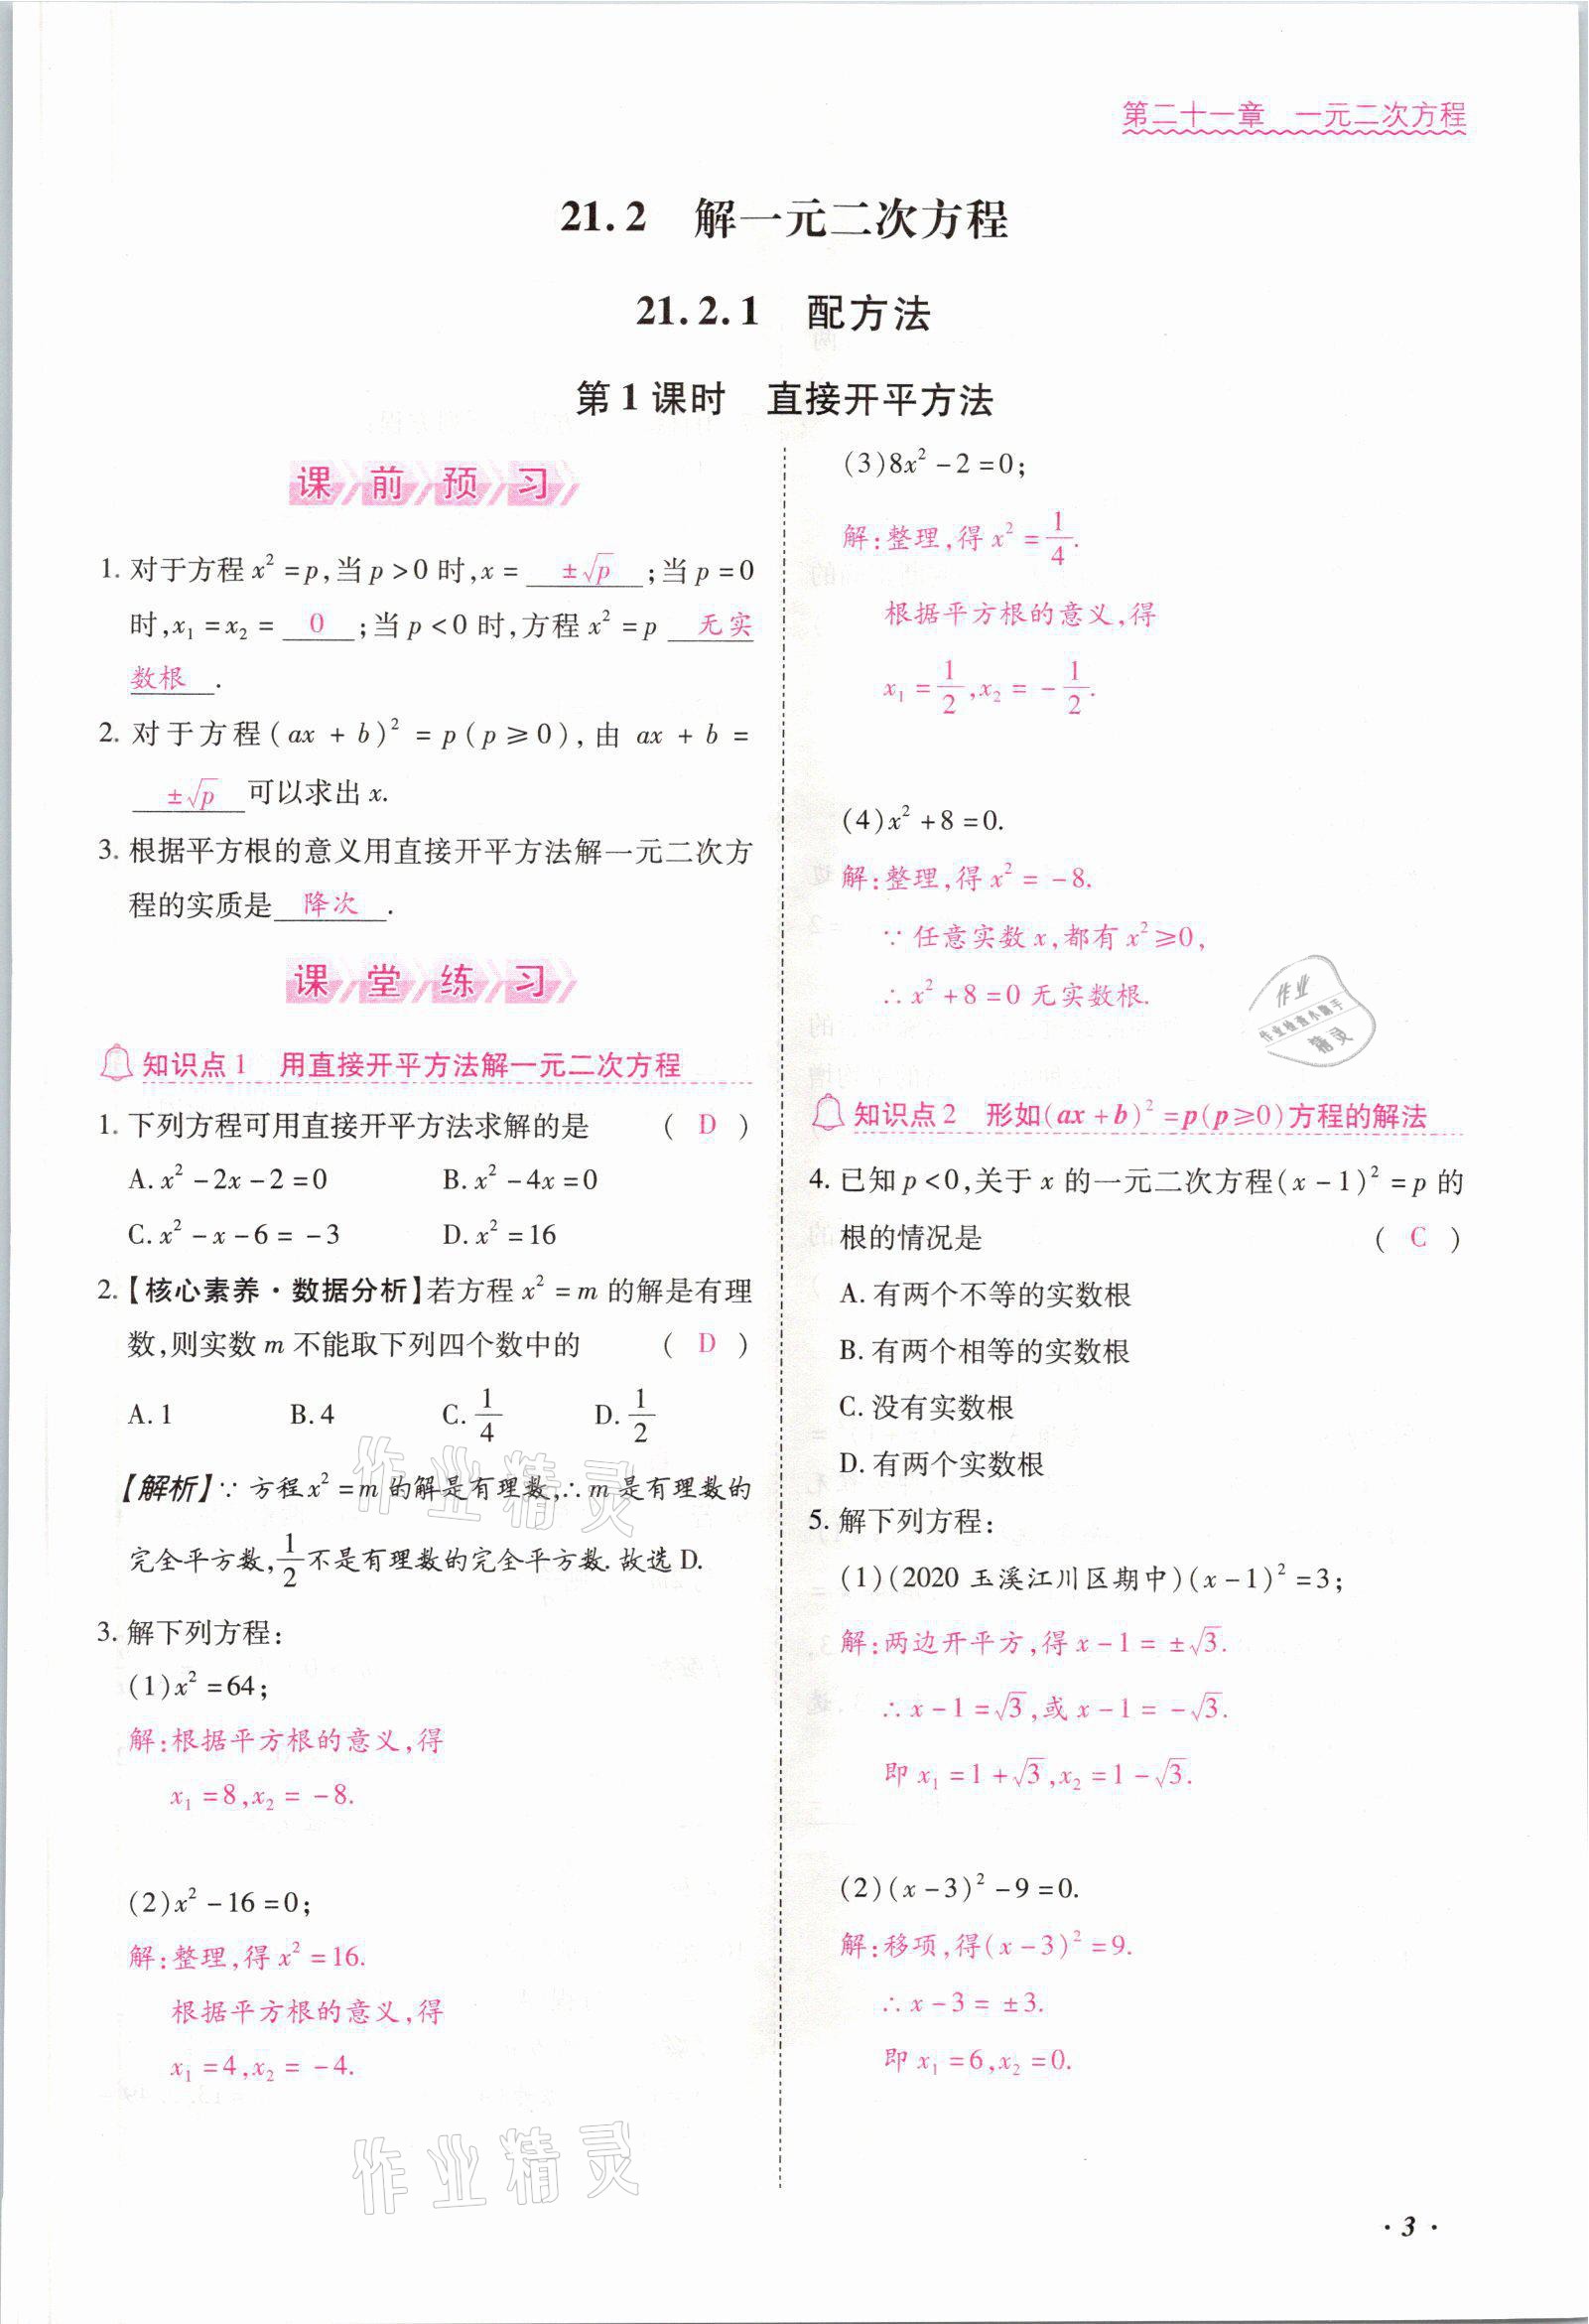 第二十一章 一元二次方程
21.2 解一元二次方程
21.2.1 配方法
第1课时 直接开平方法
课前预习
1. 对于方程x²=p,当p>0时,x= ±√p ;当p=0
时,x₁=x₂= 0 ;当p<0时,方程x²=p 无实
数根 .
2. 对于方程(ax+b)²=p(p≥0),由 ax+b=
±√p 可以求出x.
3. 根据平方根的意义用直接开平方法解一元二次方
程的实质是 降次 .
课堂练习
知识点1 用直接开平方法解一元二次方程
1. 下列方程可用直接开平方法求解的是 ( D )
A. x²-2x-2=0 B. x²-4x=0
C. x²-x-6=-3 D. x²=16
2.【核心素养·数据分析】若方程x²=m的解是有理
数,则实数m不能取下列四个数中的 ( D )
A. 1 B. 4 C. 1/4 D. 1/2
【解析】∵方程x²=m的解是有理数,∴m是有理数的
完全平方数,1/2不是有理数的完全平方数.故选D.
3. 解下列方程:
(1)x²=64;
解:根据平方根的意义,得
x₁=8,x₂=-8.
(2)x²-16=0;
解:整理,得x²=16.
根据平方根的意义,得
x₁=4,x₂=-4.
(3)8x²-2=0;
解:整理,得x²=1/4.
根据平方根的意义,得
x₁=1/2,x₂=-1/2.
(4)x²+8=0.
解:整理,得x²=-8.
∵任意实数x,都有x²≥0,
∴x²+8=0无实数根.
作业
作业检查小助手
精灵
知识点2 形如(ax+b)²=p(p≥0)方程的解法
4. 已知p<0,关于x的一元二次方程(x-1)²=p的
根的情况是 ( C )
A. 有两个不等的实数根
B. 有两个相等的实数根
C. 没有实数根
D. 有两个实数根
5. 解下列方程:
(1)(2020玉溪江川区期中)(x-1)²=3;
解:两边开平方,得x-1=±√3.
∴x-1=√3,或x-1=-√3.
即x₁=1+√3,x₂=1-√3.
(2)(x-3)²-9=0.
解:移项,得(x-3)²=9.
∴x-3=±3.
即x₁=6,x₂=0.
作业精灵
作业精灵
·3·